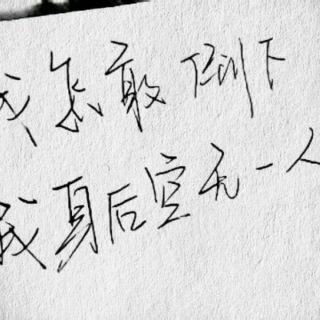 我怎敢倒下
我身后空无一人